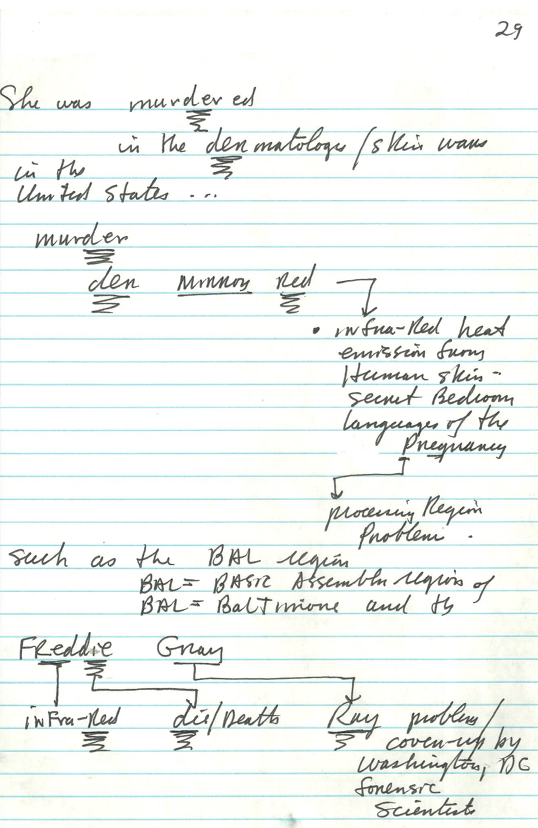 29
She was murdered
in the dermatology/skin wars
in the
United States ...
murder
der mirror red
• infra-Red heat
emission from
Human skin -
secret Bedroom
languages of the
Pregnancy
processing Region
Problem.
such as the BAL region
BAL = BASIC Assembler region of
BAL = BalTimore and th
FReddie Gray
inFra-Red die/Death Ray problem/
cover-up by
Washington, DC
forensic
Scientists